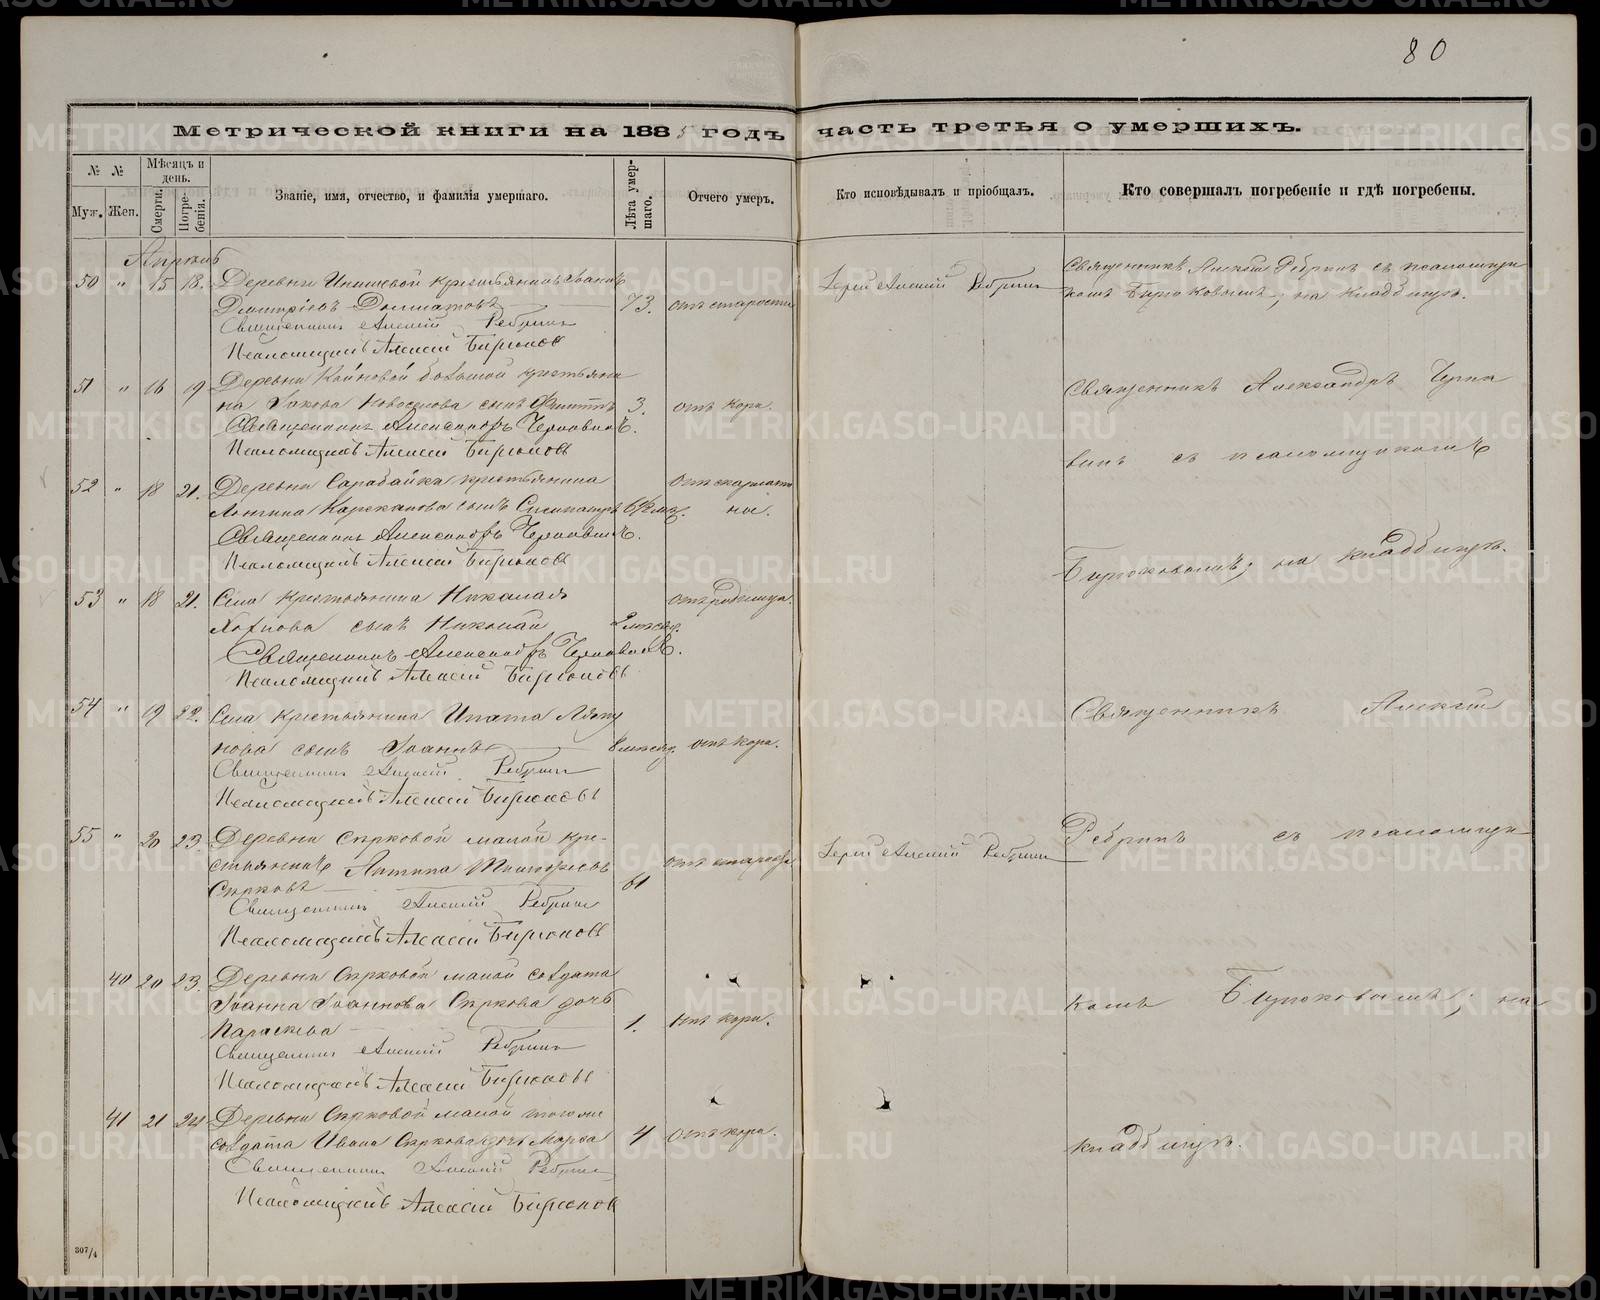 80
Метрической книги на 1885 годъ часть третья о умершихъ.
№ №
Мѣсяцъ и день.
Муж. Жен. Смерти. Погребенія.
Званіе, имя, отчество, и фамилія умершаго.
Лѣта умершаго.
Отчего умеръ.
Кто исповѣдывалъ и пріобщалъ.
Кто совершалъ погребеніе и гдѣ погребены.
Апрѣль
50 " 15 18. Деревни крестьянинъ Іванъ
Димитріевъ Долматовъ 73. отъ старости
Священникъ Алексій Ребринъ
Псаломщикъ Алексій Бирюковъ
Іерей Алексій Ребринъ
Священникъ Алексій Ребринъ съ псаломщи
комъ Бирюковымъ, на кладбищѣ.
51 " 16 19 Деревни Койновой большой крестьяни
на Іакова Новоселова сынъ 3. отъ кори.
Священникъ Александръ Чернавинъ.
Псаломщикъ Алексій Бирюковъ
Священникъ Александръ Черна
винъ съ псаломщикомъ
52 " 18 21. Деревни Сарабайка крестьянина
Лонгина сынъ отъ скарлати
ны.
Священникъ Александръ Чернавинъ.
Псаломщикъ Алексій Бирюковъ
Бирюковымъ, на кладбищѣ.
53 " 18 21. Села крестьянина Николая
сынъ Николай 2 мѣсяц. отъ родимца.
Священникъ Александръ Чернавинъ.
Псаломщикъ Алексій Бирюковъ
54 " 19 22. Села крестьянина Ипата Ляпу
нова сынъ Іоаннъ 8 мѣсяц. отъ кори.
Священникъ Алексій Ребринъ
Псаломщикъ Алексій Бирюковъ
Священникъ Алексій
55 " 20 23 Деревни Сырковой малой кре-
стьянинъ Антипа Тимофеевъ
Сырковъ 61 отъ старости
Священникъ Алексій Ребринъ
Псаломщикъ Алексій Бирюковъ
Іерей Алексій Ребринъ
Ребринъ съ псаломщи-
40 20 23. Деревни Сырковой малой солдата
Іоанна Іоаннова Сыркова дочь
Параскева 1. отъ кори.
Священникъ Алексій Ребринъ
Псаломщикъ Алексій Бирюковъ
комъ Бирюковымъ, на
41 21 24 Деревни Сырковой малой того же
солдата Ивана Сыркова дочь Марфа 4 отъ кори.
Священникъ Алексій Ребринъ
Псаломщикъ Алексій Бирюковъ
кладбищѣ.
307/4
METRIKI.GASO-URAL.RU